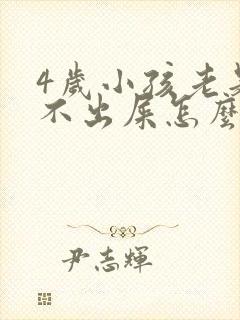 4歲小孩老是
不出屎怎麼
尹志輝